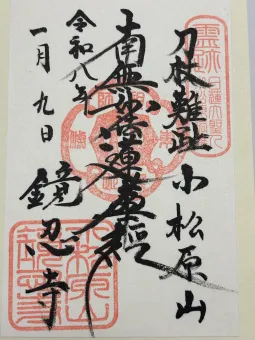 刀杖難趾 小松原山
南無妙法蓮華経
令和八年
一月九日
鏡忍寺